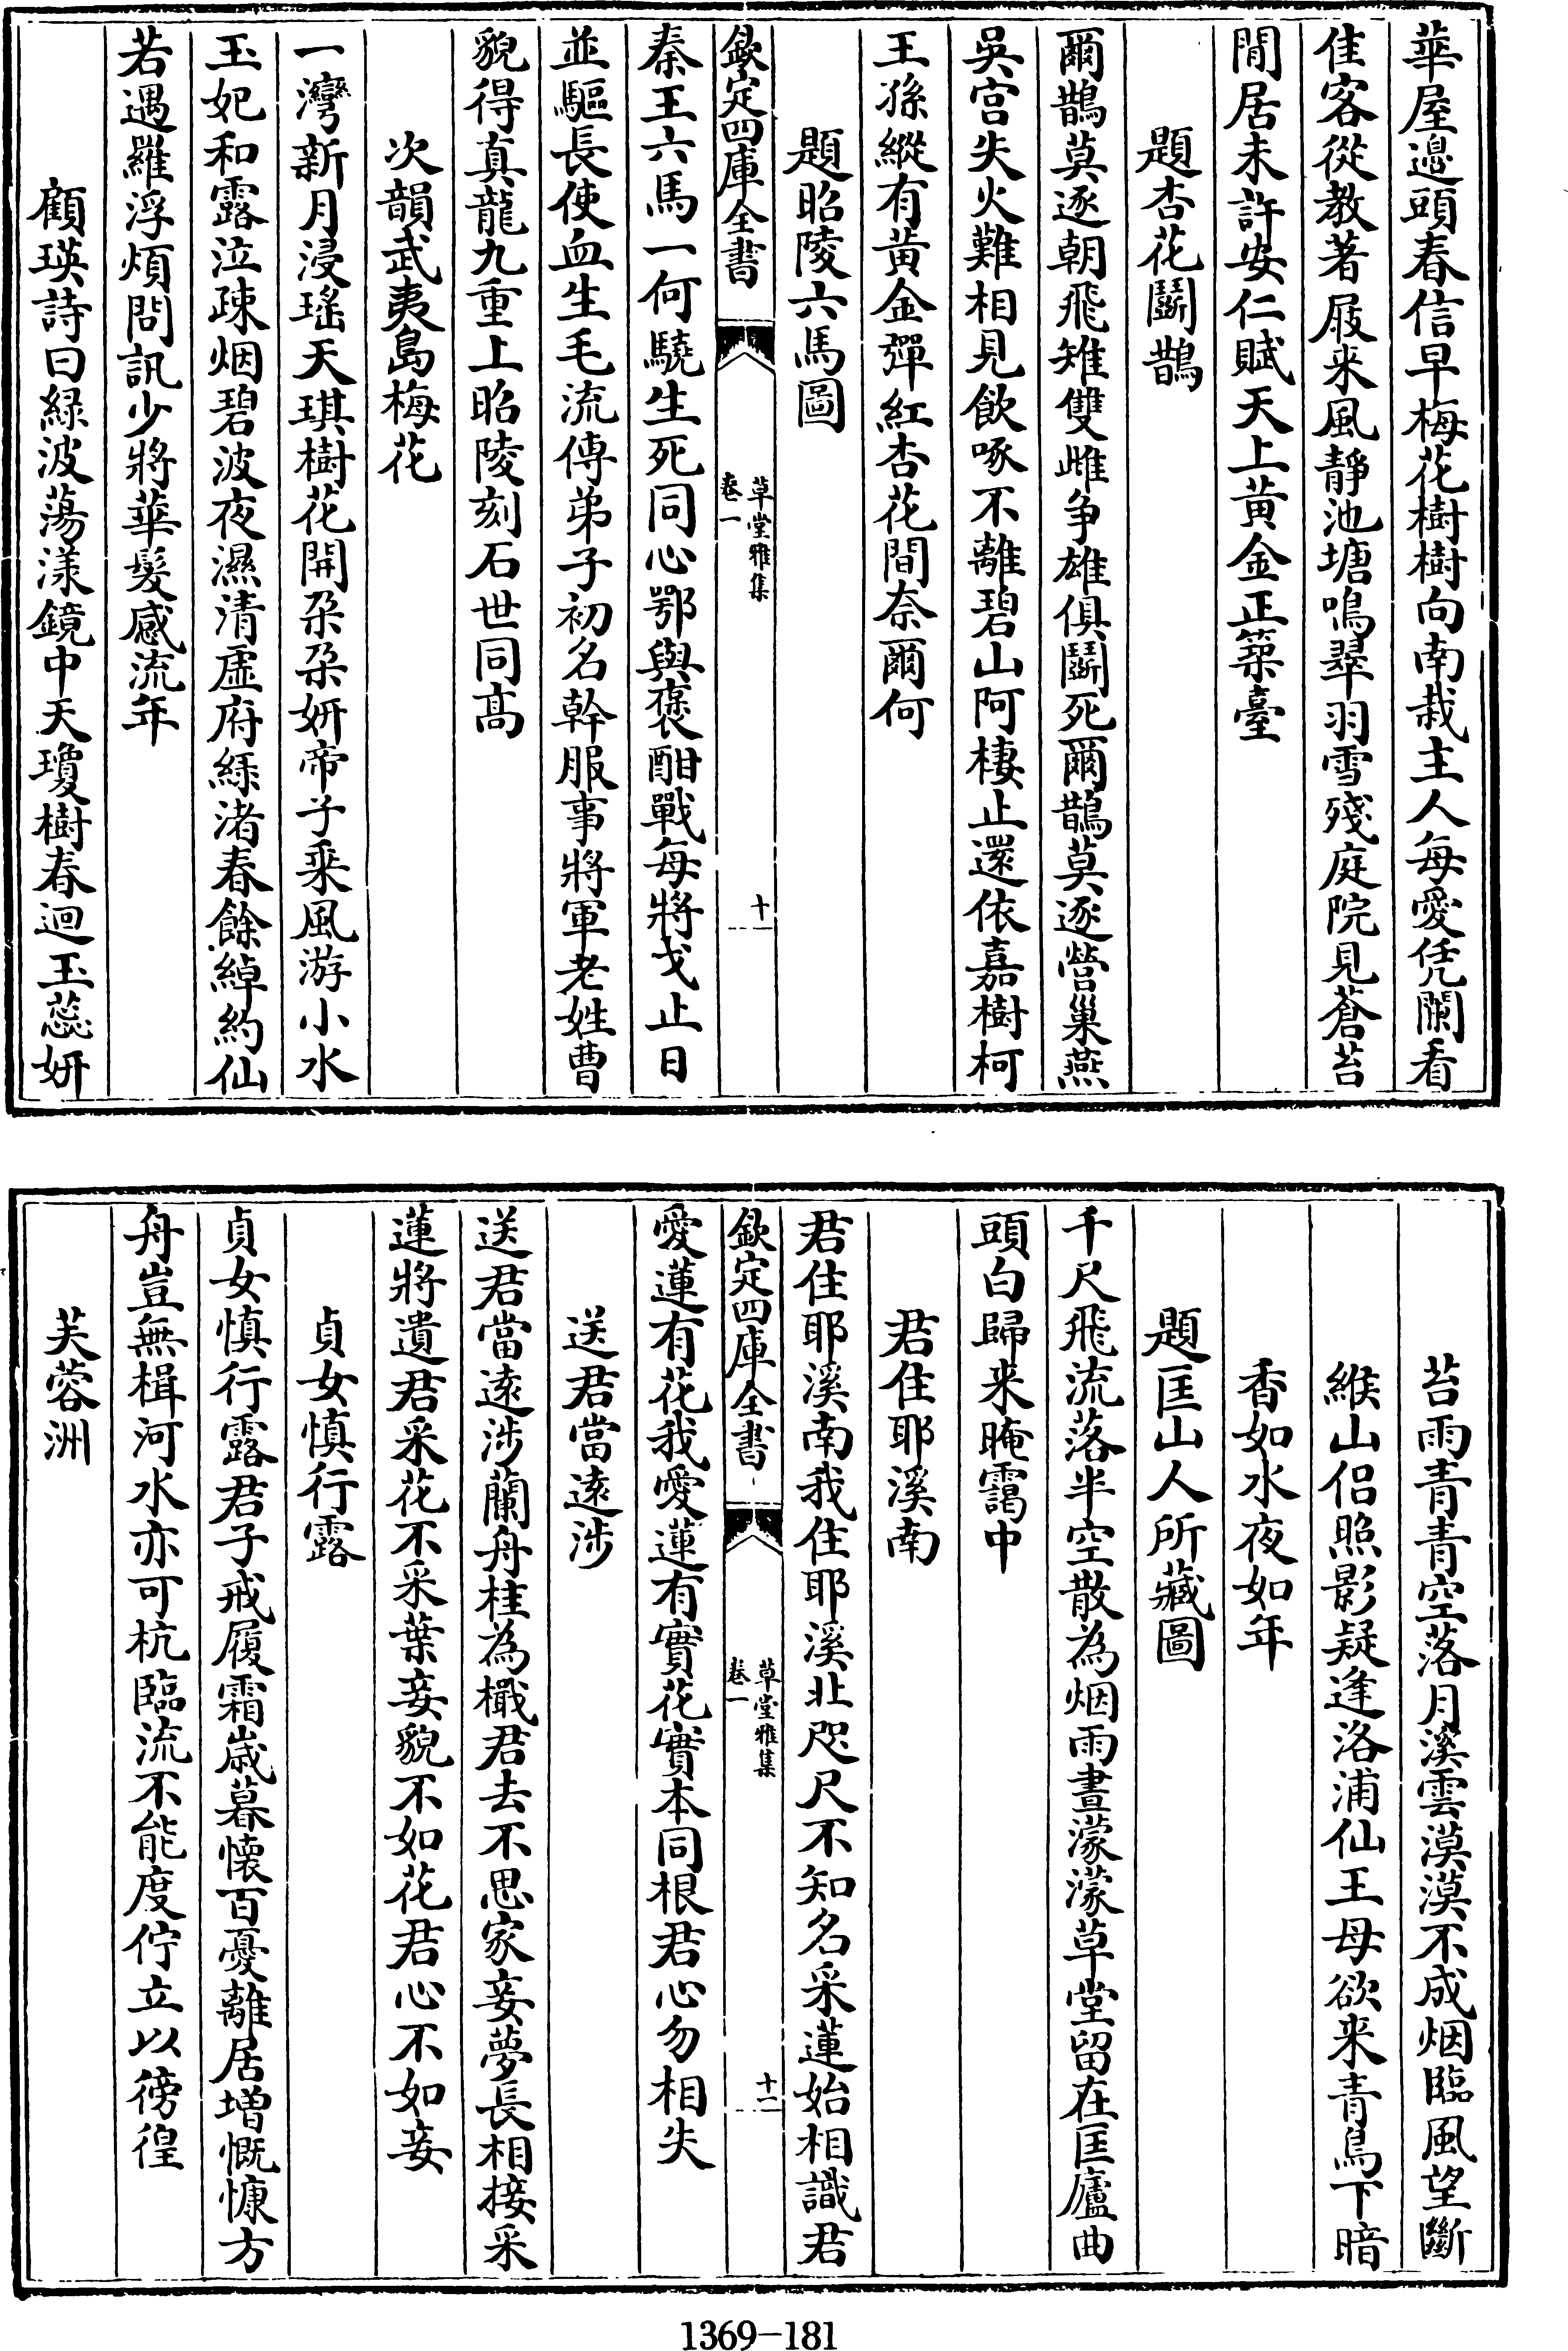 華屋邉頭春信早梅花樹樹向南栽主人每愛凭闌看
佳客從教著屐来風靜池塘鳴翠羽雪殘庭院見蒼苔
閒居未許安仁賦天上黄金正築臺
題杏花鬭鵲
爾鵲莫逐朝飛雉雙雌争雄俱鬭死爾鵲莫逐營巢燕
吳宫失火難相見飲啄不離碧山阿棲止還依嘉樹柯
王孫縱有黃金彈紅杏花間奈爾何
題昭陵六馬圖
欽定四庫全書
草堂雅集
卷一
十
秦王六馬一何驍生死同心鄂與褒酣戰每將戈止日
並驅長使血生毛流傳弟子初名幹服事將軍老姓曹
貌得真龍九重上昭陵刻石世同髙
次韻武夷島梅花
一灣新月浸瑤天琪樹花開朶朶妍帝子乘風游小水
玉妃和露泣疎烟碧波夜濕清虛府綠渚春餘綽約仙
若遇羅浮煩問訊少將華髮感流年
顧瑛詩曰緑波蕩漾鏡中天瓊樹春迴玉蕊妍
苔雨青青空落月溪雲漠漠不成烟臨風望斷
緱山侣照影疑逢洛浦仙王母欲来青鳥下暗
香如水夜如年
題匡山人所藏圖
千尺飛流落半空散為烟雨晝濛濛草堂留在匡廬曲
頭白歸来晻靄中
君住耶溪南
君住耶溪南我住耶溪北咫尺不知名采蓮始相識君
欽定四庫全書
草堂雅集
卷一
十一
愛蓮有花我愛蓮有實花實本同根君心勿相失
送君當逺涉
送君當逺涉蘭舟桂為檝君去不思家妾夢長相接采
蓮將遺君采花不采葉妾貌不如花君心不如妾
貞女慎行露
貞女慎行露君子戒履霜歳暮懐百憂離居增慨慷方
舟豈無楫河水亦可杭臨流不能度佇立以徬徨
芙蓉洲
1369-181